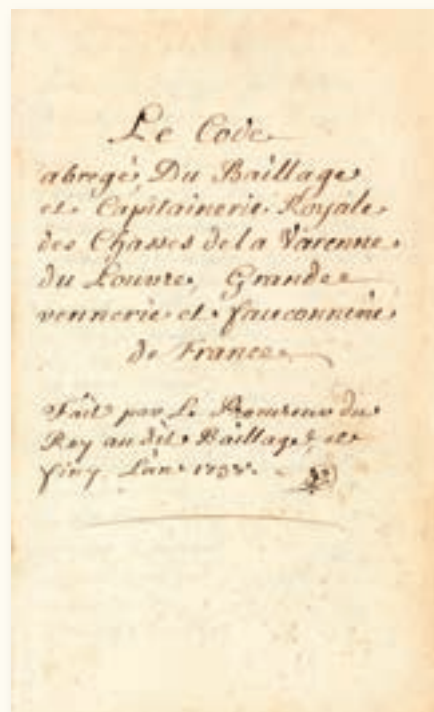 Le Code
abregé Du Baillage
et Capitainerie Royale
des Chasses de la Varenne
du Louvre, Grande
vennerie et fauconnerie
de France
Fait par Le Procureur du
Roy au dit Baillage et
finy L'an